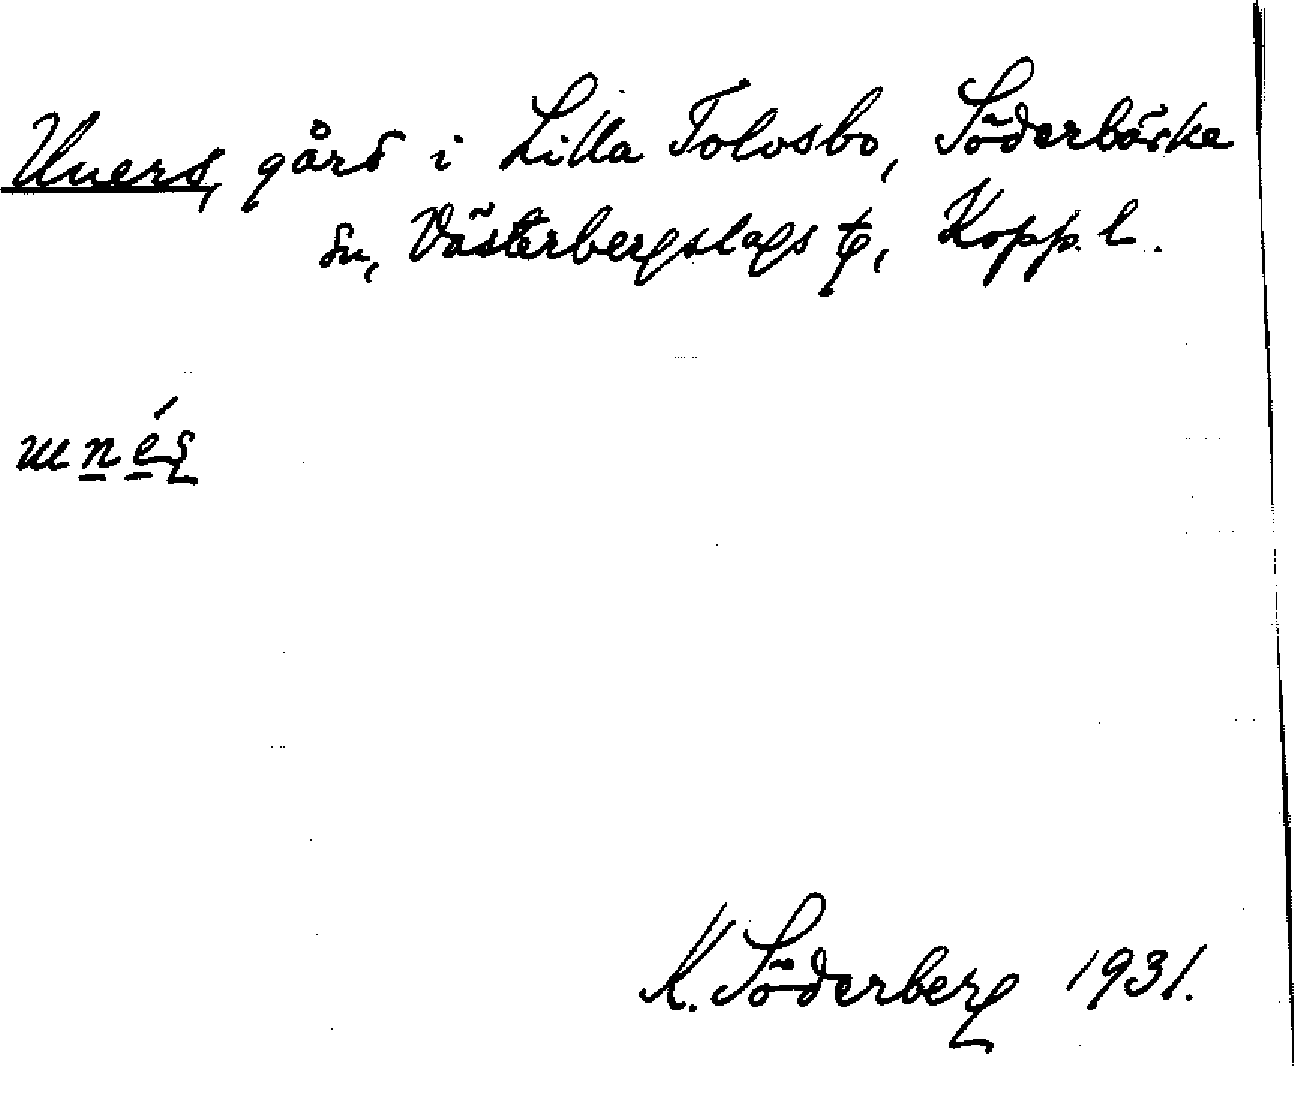 Uners, gård i Lilla Tolvsbo, Söderbärke
sn, Västerbergslags tg, Kopp. l.
K. Söderberg 1931.